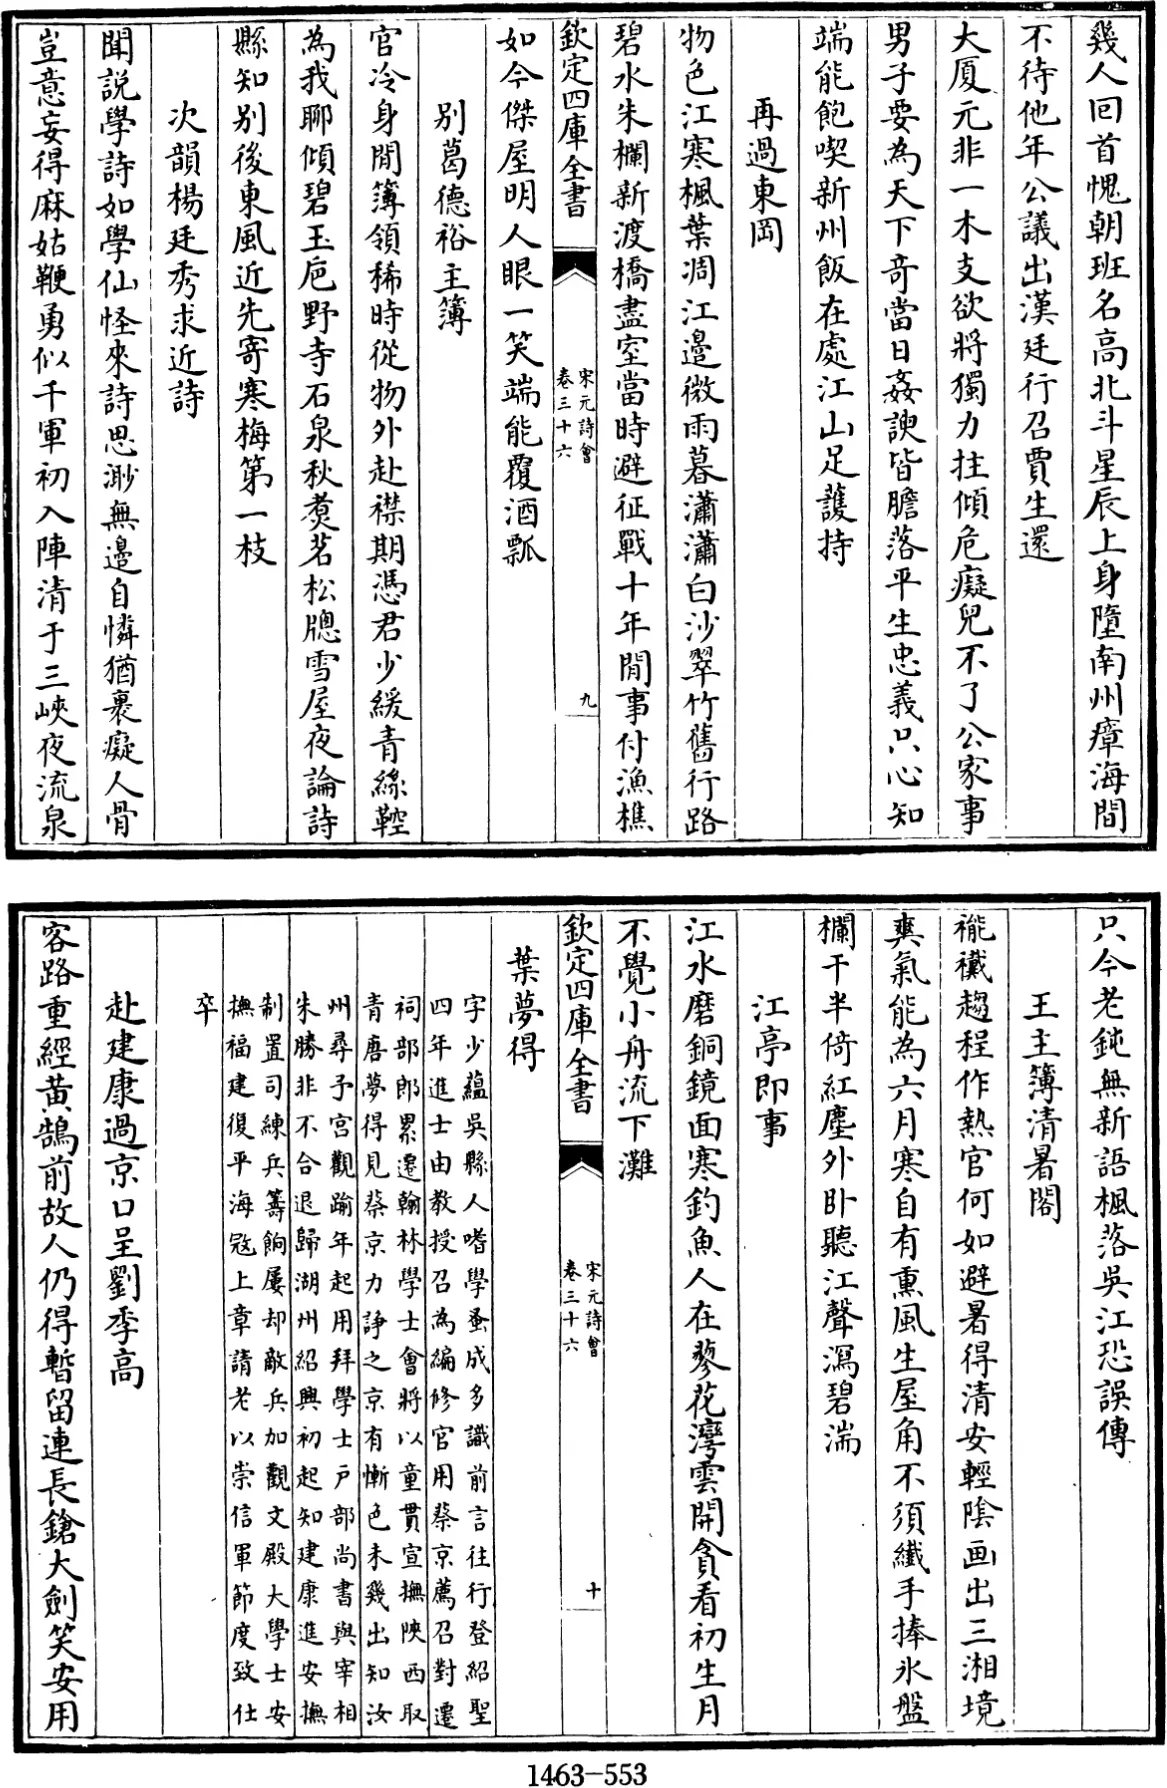 幾人回首愧朝班名高北斗星辰上身墮南州瘴海間
不待他年公議出漢廷行召賈生還
大厦元非一木支欲將獨力拄傾危癡兒不了公家事
男子要為天下奇當日姦諛皆膽落平生忠義只心知
端能飽喫新州飯在處江山足護持
再過東岡
物色江寒楓葉凋江邊微雨暮瀟瀟白沙翠竹舊行路
碧水朱欄新渡橋盡室當時避征戰十年閒事付漁樵
欽定四庫全書
宋元詩會
卷三十六
九
如今傑屋明人眼一笑端能覆酒瓢
別葛德裕主簿
官冷身閒簿領稀時從物外赴襟期憑君少緩青絲鞚
為我聊傾碧玉巵野寺石泉秋煑茗松牕雪屋夜論詩
縣知別後東風近先寄寒梅第一枝
次韻楊廷秀求近詩
聞説學詩如學仙怪來詩思渺無邉自憐猶裹癡人骨
豈意妄得麻姑鞭勇似千軍初入陣清于三峽夜流泉
只今老鈍無新語楓落吳江恐誤傳
王主簿清暑閣
褦襶趨程作熱官何如避暑得清安輕陰画出三湘境
爽氣能為六月寒自有熏風生屋角不須纖手捧氷盤
欄干半倚紅塵外卧聽江聲瀉碧湍
江亭即事
江水磨銅鏡面寒釣魚人在蓼花灣雲開貪看初生月
不覺小舟流下灘
欽定四庫全書
宋元詩會
卷三十六
十
葉夢得
字少蘊吳縣人嗜學蚤成多識前言往行登紹聖
四年進士由教授召為編修官用蔡京薦召對遷
祠部郎累遷翰林學士會將以童貫宣撫陜西取
青唐夢得見蔡京力諍之京有慚色未幾出知汝
州尋予宮觀踰年起用拜學士戸部尚書與宰相
朱勝非不合退歸湖州紹興初起知建康進安撫
制置司練兵籌餉屢却敵兵加觀文殿大學士安
撫福建復平海冦上章請老以崇信軍節度致仕
卒
赴建康過京口呈劉季高
客路重經黄鵠前故人仍得暫留連長鎗大劍笑安用
1463-553